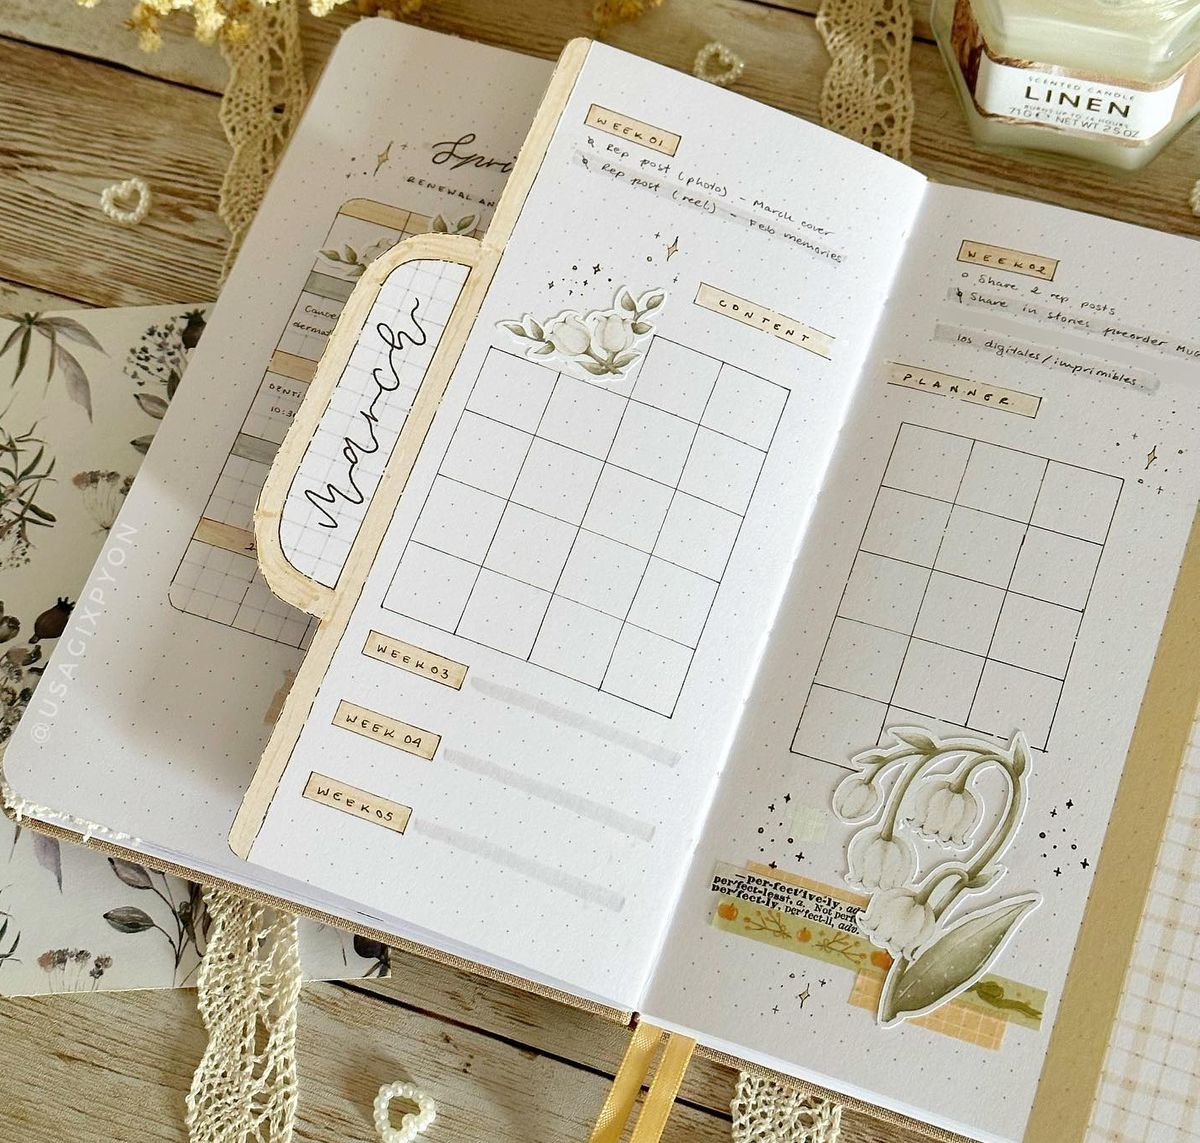 SCENTED CANDLE
LINEN
BURNS UP TO 16 HOURS
71G e NET WT 2.5 OZ
Spri
RENEWAL AN
DENTI
10:3
March
WEEK 01
Rep post (photo) - March cover
Rep post (reel) - Feb memories
CONTENT
WEEK 03
WEEK 04
WEEK 05
WEEK 02
Share 2 rep posts
Share in stories preorder Mug
los digitales/imprimibles.
PLANNER
—per-fect'ive-ly, ad
per'fect-less†, a. Not perf
per'fect-ly, per'fect-lĭ, adv.
@USAGIXPYON